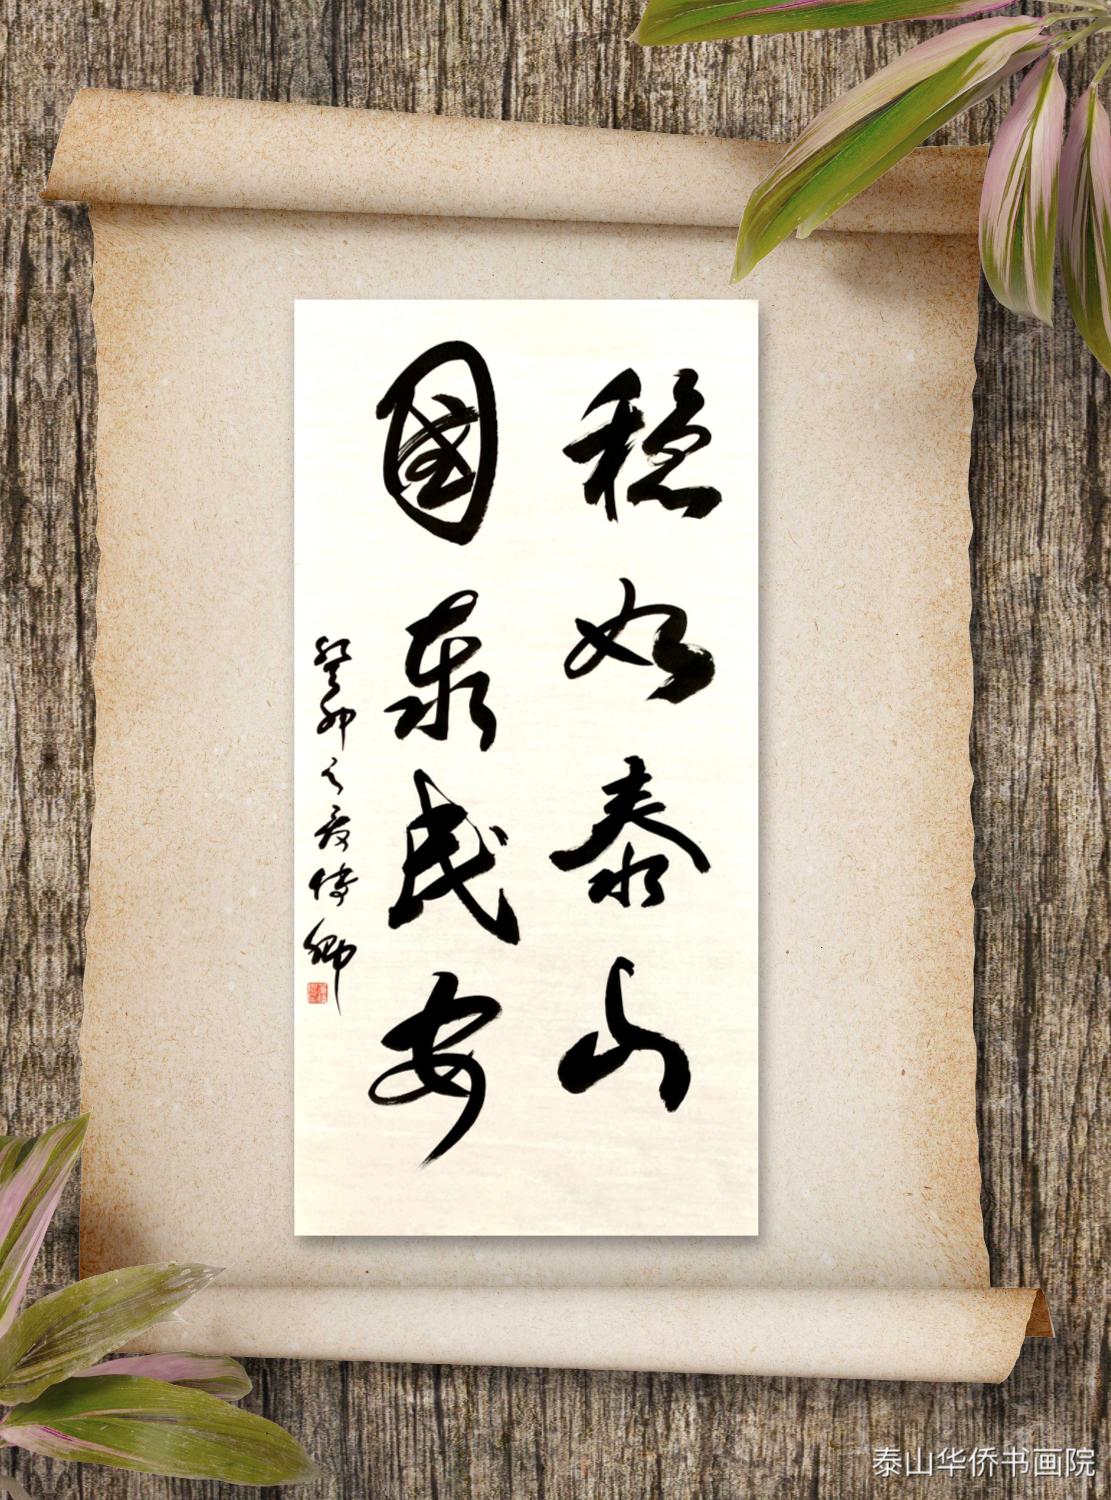 稳如泰山
国泰民安
癸卯之夏传卿
泰山华侨书画院